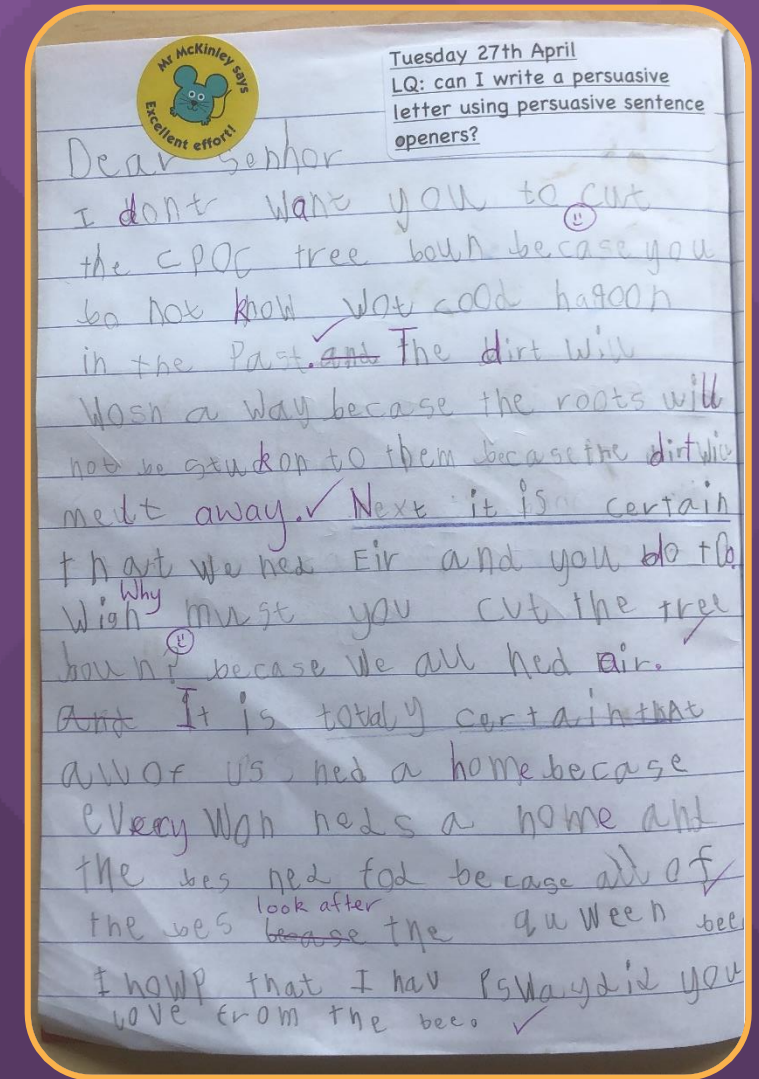 Mr McKinley says
Excellent effort!
Tuesday 27th April
LQ: can I write a persuasive
letter using persuasive sentence
openers?
Dear Senhor
I dont want you to cut
the CPOC tree boun becase you
bo not know wot cood hapoon
in the Past. and The dirt will
Wosh a way becase the roots will
not be stuck on to them becase the dirt will
melt away. ✓ Next it is certain
that we ned Eir and you do to.
Wigh Why must you cut the tree
boun? becase we all ned air.
And It is totaly certain that
all of us ned a home becase
every won neds a home and
the bes ned fod becase all of
the bes becase look after the quween bee
I howp that I hav Pswaydid you
love from the bee.